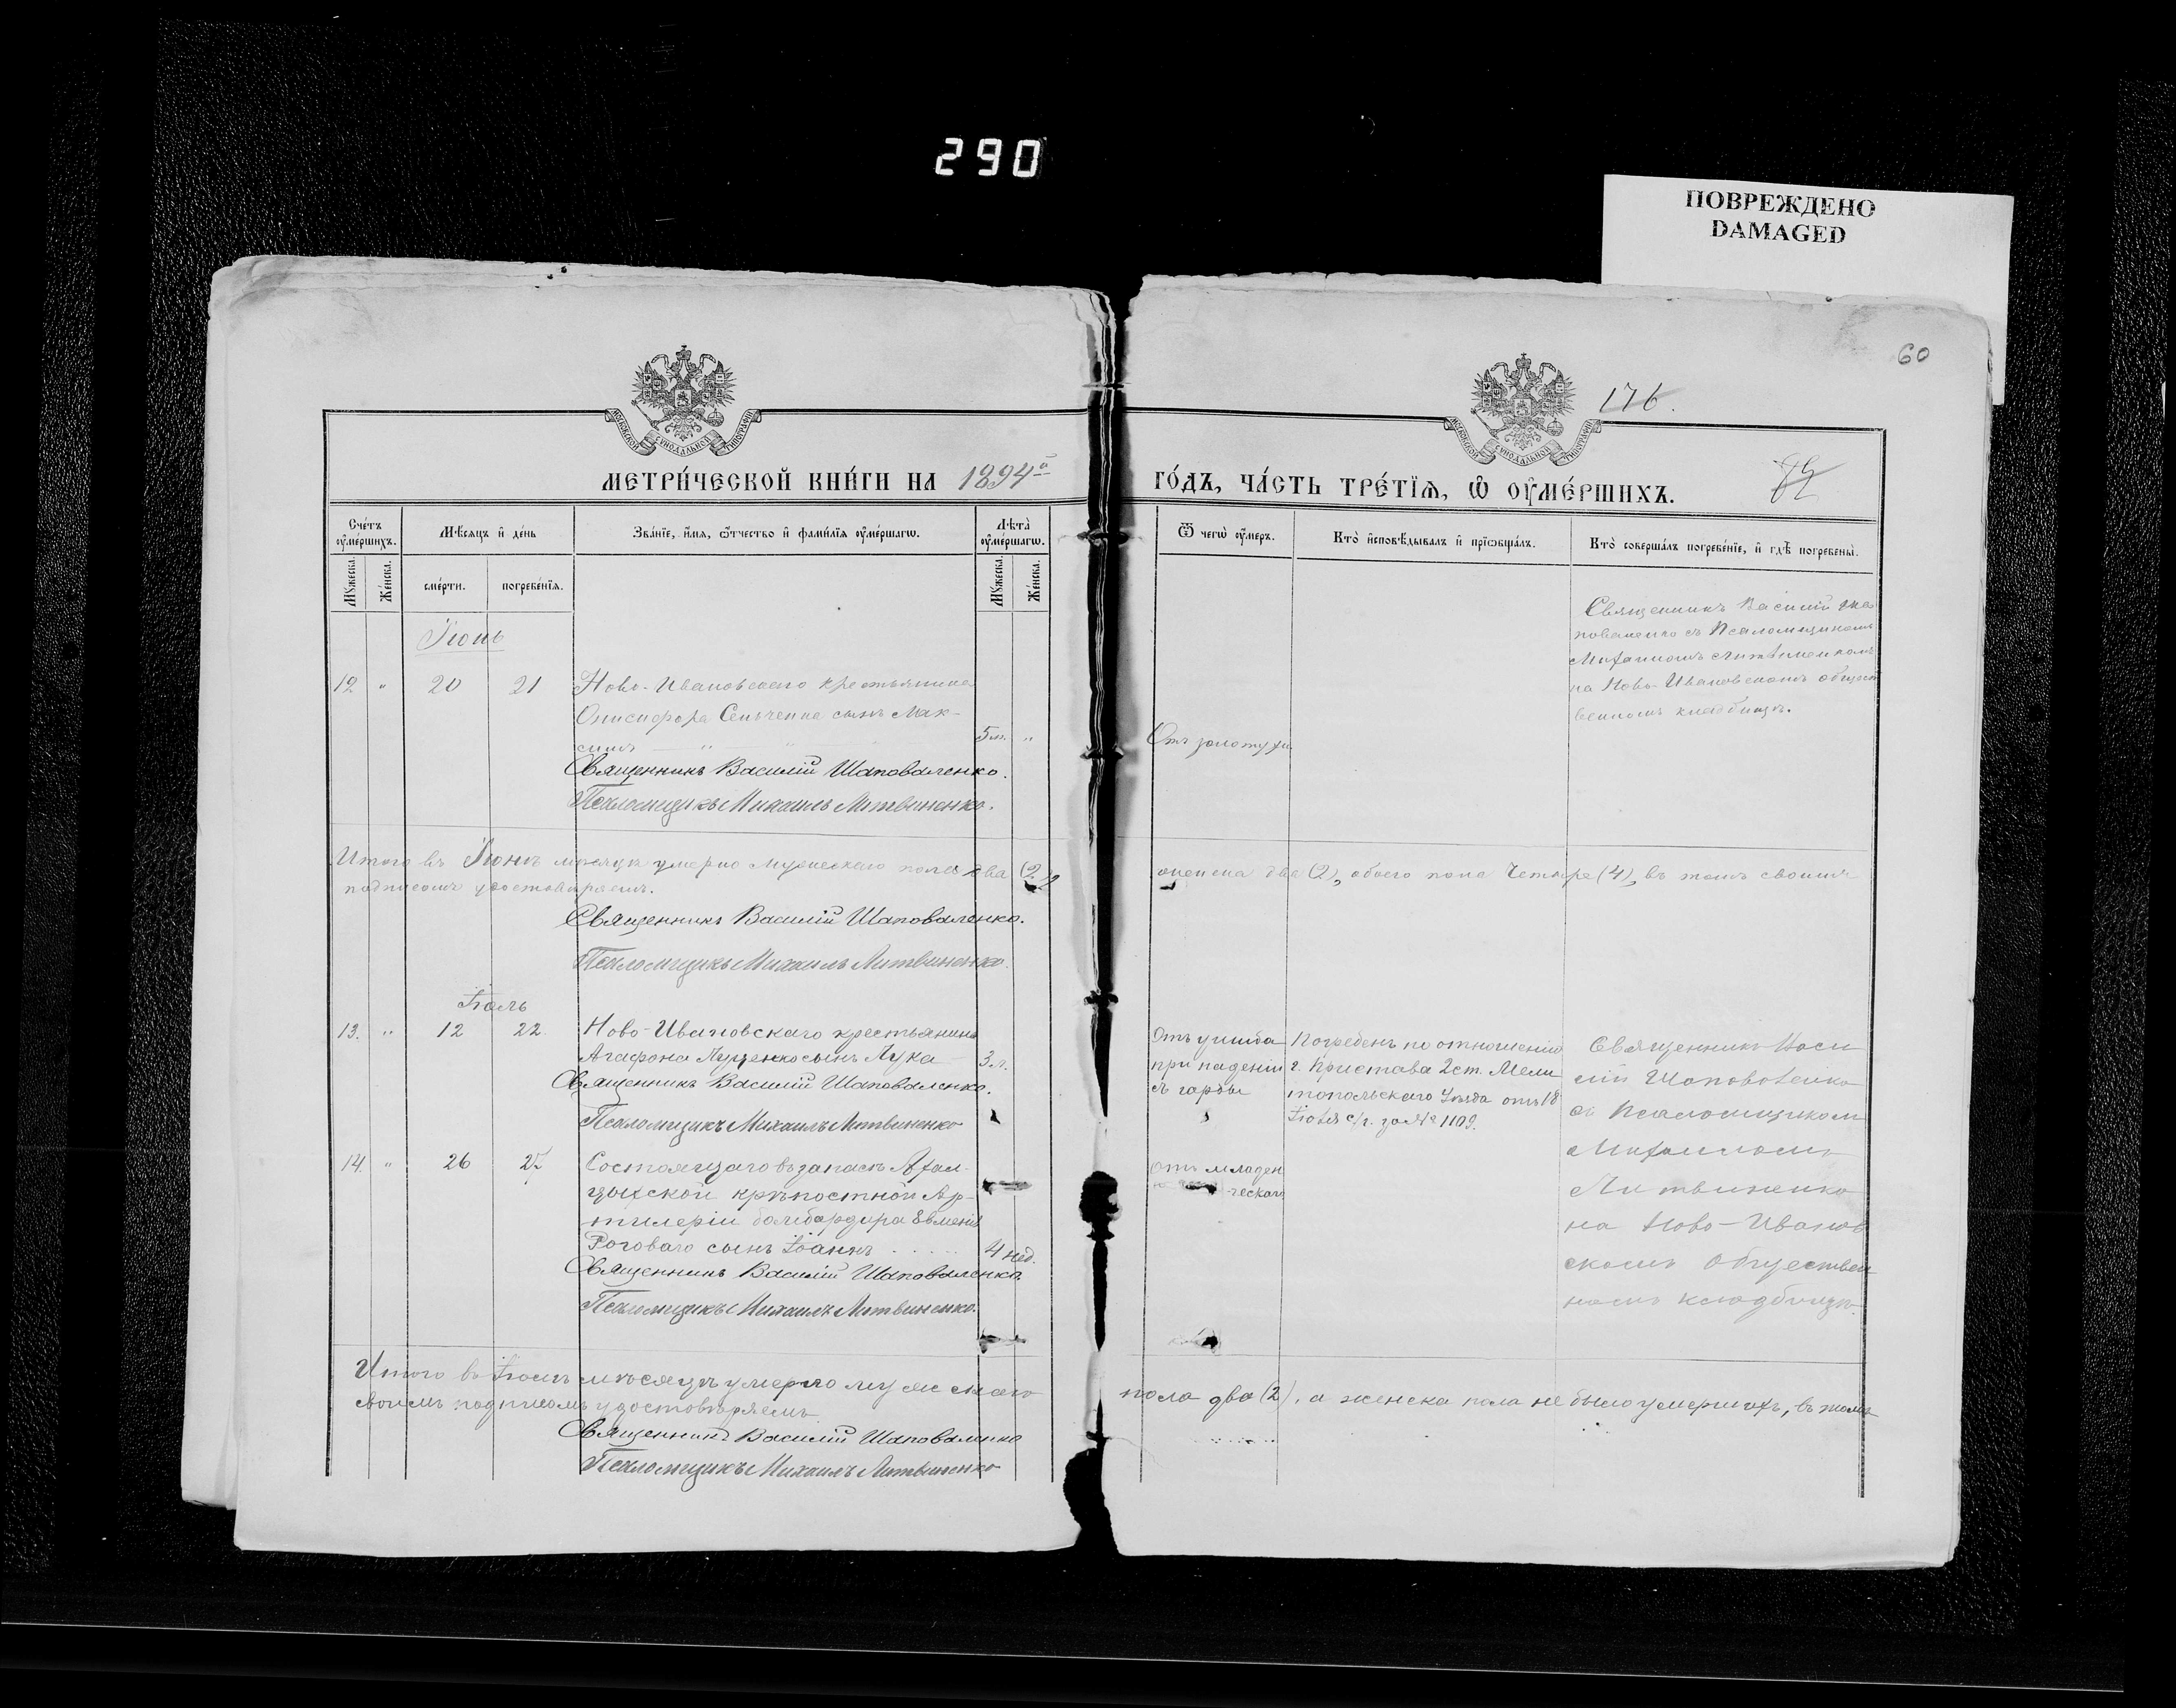 290
ПОВРЕЖДЕНО
DAMAGED
60
176.
МОСКОВСКОЙ СѴНОДАЛЬНОЙ ТИПОГРАФІИ
МОСКОВСКОЙ СѴНОДАЛЬНОЙ ТИПОГРАФІИ
МЕТРИ́ЧЕСКОЙ КНИ́ГИ НА 1894й
ГО́ДЪ, ЧА́СТЬ ТРЕ́ТЇѦ, Ѡ҆ ОУ҆МЕ́РШИХЪ.
Сче́тъ оу҆ме́ршихъ.
Мꙋ́жеска.
Же́нска.
Мѣ́сѧцъ и҆ де́нь
сме́рти.
погребе́нїѧ.
Зва́нїе, и҆́мѧ, ѻ҆́тчество и҆ фами́лїѧ оу҆ме́ршагѡ.
Лѣ̑та оу҆ме́ршагѡ.
Мꙋ́жеска.
Же́нска.
Ѿ чегѡ̀ оу҆́меръ.
Кто̀ и҆сповѣ́дывалъ и҆ прїѡбща́лъ.
Кто̀ соверша́лъ погребе́нїе, и҆ гдѣ̀ погребены̀.
Іюнь
12 " 20 21 Ново-Ивановскаго крестьянина
Онисифора Сенченка сынъ Мак-
симъ — " — " 5 м. "
Священникъ Василій Шаповаленко.
Псаломщикъ Михаилъ Литвиненко.
Отъ золотухи
Священникъ Василій Ша
поваленко съ Псаломщикомъ
Михаиломъ Литвиненкомъ
на Ново-Ивановскомъ общест
венномъ кладбищѣ.
Итого въ Іюнѣ мѣсяцѣ умерло мужескаго пола два (2)
женска два (2), обоего пола четыре (4), въ томъ своимъ
подписомъ удостовѣряемъ.
Священникъ Василій Шаповаленко.
Псаломщикъ Михаилъ Литвиненко.
Іюль
13. " 12 22 Ново-Ивановскаго крестьянина
Агафона Луценко сынъ Лука 3 л.
Священникъ Василій Шаповаленко.
Псаломщикъ Михаилъ Литвиненко
Отъ ушиба
при паденіи
съ гарбы
Погребенъ по отношенію
г. Пристава 2 ст. Мели
топольскаго Уѣзда отъ 18
Іюля с/г. за № 1109.
Священникъ Васи
лій Шаповаленко
съ Псаломщикомъ
Михаиломъ
Литвиненко
на Ново-Иванов
скомъ Обществен
номъ кладбищѣ.
14. " 26 27 Состоящаго въ запасѣ Ахал-
цыхской крѣпостной Ар-
тилеріи бомбардира Евменія
Рогового сынъ Іоаннъ . . . . . 4 нед.
Священникъ Василій Шаповаленко.
Псаломщикъ Михаилъ Литвиненко.
отъ младен
ческаго
Итого въ Іюлѣ мѣсяцѣ умерло мужескаго
пола два (2), а женска пола не было умершихъ, въ томъ
своимъ подписомъ удостовѣряемъ
Священникъ Василій Шаповаленко
Псаломщикъ Михаилъ Литвиненко